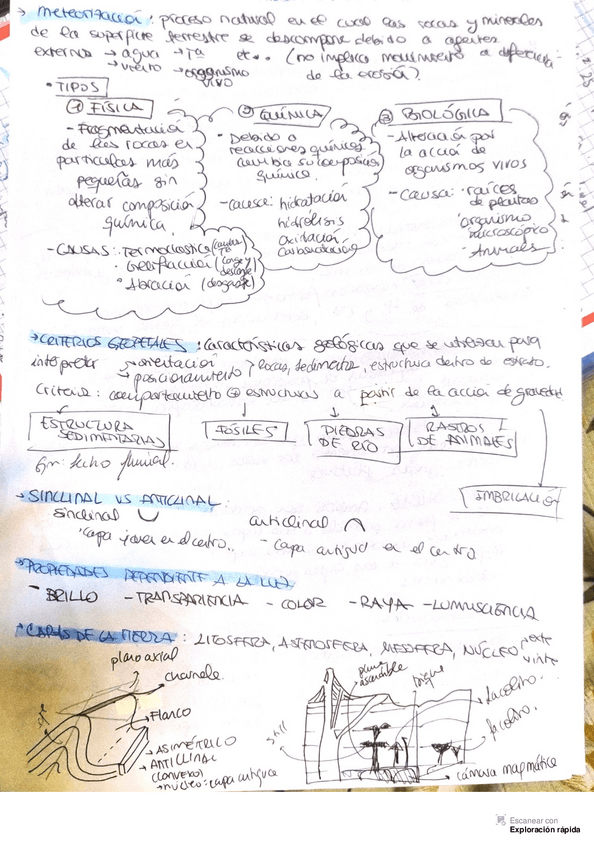 → METEORIZACIÓN: proceso natural en el cual las rocas y minerales
de la superficie terrestre se descompone debido a agentes
externos → agua → Tª etc.. (no implica movimiento a diferencia
→ viento → organismo vivo de la erosión).
• TIPOS
① FÍSICA
- Fragmentación
de las rocas en
partículas más
pequeñas sin
alterar composición
química.
- CAUSAS: • Termoclastia (cambios Tª
• Gelifracción (conge y descongele)
• Abración (desgaste)
② QUÍMICA
- Debido a
reacciones químicas
cambia su composición
química.
- causa: hidratación
hidrólisis
Oxidación
Carbonatación
③ BIOLÓGICA
- Alteración por
la acción de
organismos vivos
- Causa: raíces
de plantas
organismo
microscópico
• Animales
→ CRITERIOS GEOPETALES: características geológicas que se utilizan para
interpretar → orientación
→ posicionamiento rocas, sedimentos, estructura dentro de estrato.
Criterio: comportamiento estructuras a partir de la acción de gravedad
ESTRUCTURA
SEDIMENTARIAS
FÓSILES
PIEDRAS
DE RÍO
RASTROS
DE ANIMALES
fluvial.
IMBRICACIÓN
→ SINCLINAL VS ANTICLINAL:
sinclinal
anticlinal
capa joven en el centro..
- capa antigua en el centro
→ PROPIEDADES DEPENDIENTE A LA LUZ
- BRILLO - TRANSPARENCIA - COLOR - RAYA - LUMINISCENCIA
→ CAPAS DE LA TIERRA: LITOSFERA, ASTENOSFERA, MESOSFERA, NÚCLEO
plano axial
charnela
eje
Flanco
→ ASIMÉTRICO
→ ANTICLINAL
(convexo)
→ núcleo: capa antigua
dique
Lacolito.
sill
cámara magmática
Escanear con
Exploración rápida